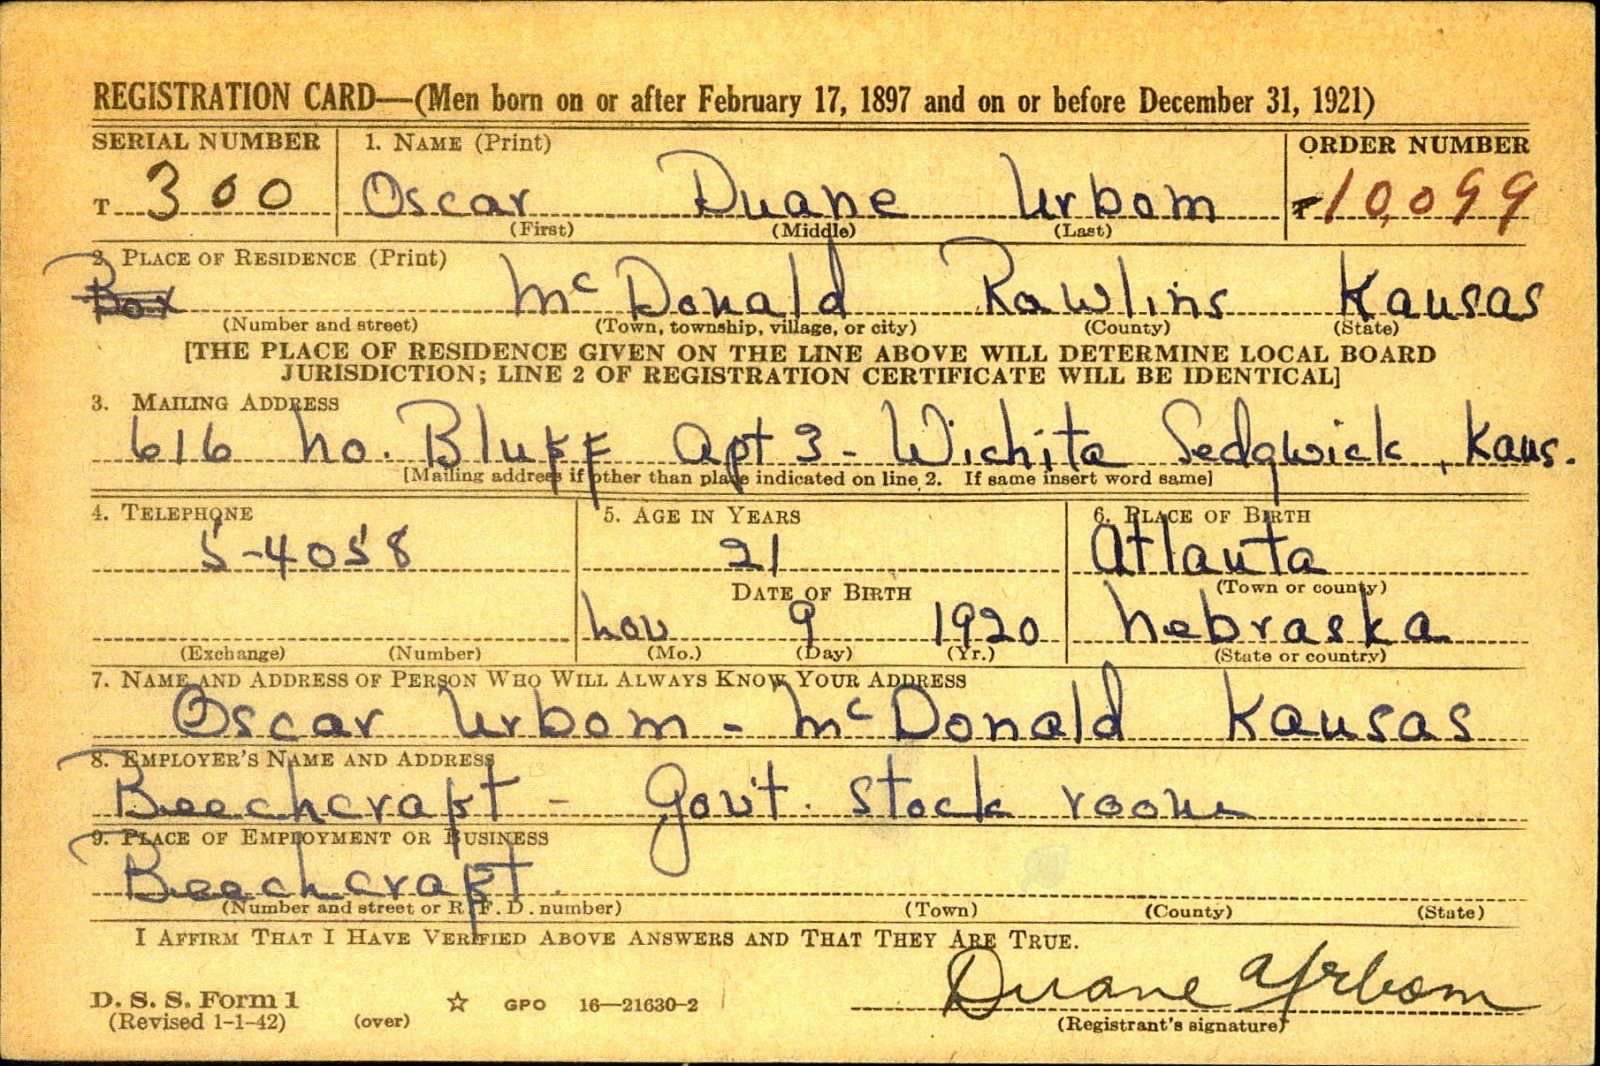 REGISTRATION CARD—(Men born on or after February 17, 1897 and on or before December 31, 1921)
SERIAL NUMBER 1. NAME (Print) ORDER NUMBER
T 300 Oscar Duane Urbom T 10,099
(First) (Middle) (Last)
2. PLACE OF RESIDENCE (Print)
Box McDonald Rawlins Kansas
(Number and street) (Town, township, village, or city) (County) (State)
[THE PLACE OF RESIDENCE GIVEN ON THE LINE ABOVE WILL DETERMINE LOCAL BOARD
JURISDICTION; LINE 2 OF REGISTRATION CERTIFICATE WILL BE IDENTICAL]
3. MAILING ADDRESS
616 No. Bluff Apt 3 - Wichita Sedgwick, Kans.
[Mailing address if other than place indicated on line 2. If same insert word same]
4. TELEPHONE 5. AGE IN YEARS 6. PLACE OF BIRTH
5-4058 21 Atlanta
DATE OF BIRTH (Town or county)
Nov 9 1920 Nebraska
(Exchange) (Number) (Mo.) (Day) (Yr.) (State or country)
7. NAME AND ADDRESS OF PERSON WHO WILL ALWAYS KNOW YOUR ADDRESS
Oscar Urbom - McDonald Kansas
8. EMPLOYER'S NAME AND ADDRESS
Beechcraft - Gov't. stock room
9. PLACE OF EMPLOYMENT OR BUSINESS
Beechcraft.
(Number and street or R. F. D. number) (Town) (County) (State)
I AFFIRM THAT I HAVE VERIFIED ABOVE ANSWERS AND THAT THEY ARE TRUE.
Duane Urbom
D. S. S. Form 1 ☆ GPO 16—21630-2
(Revised 1-1-42) (over) (Registrant's signature)